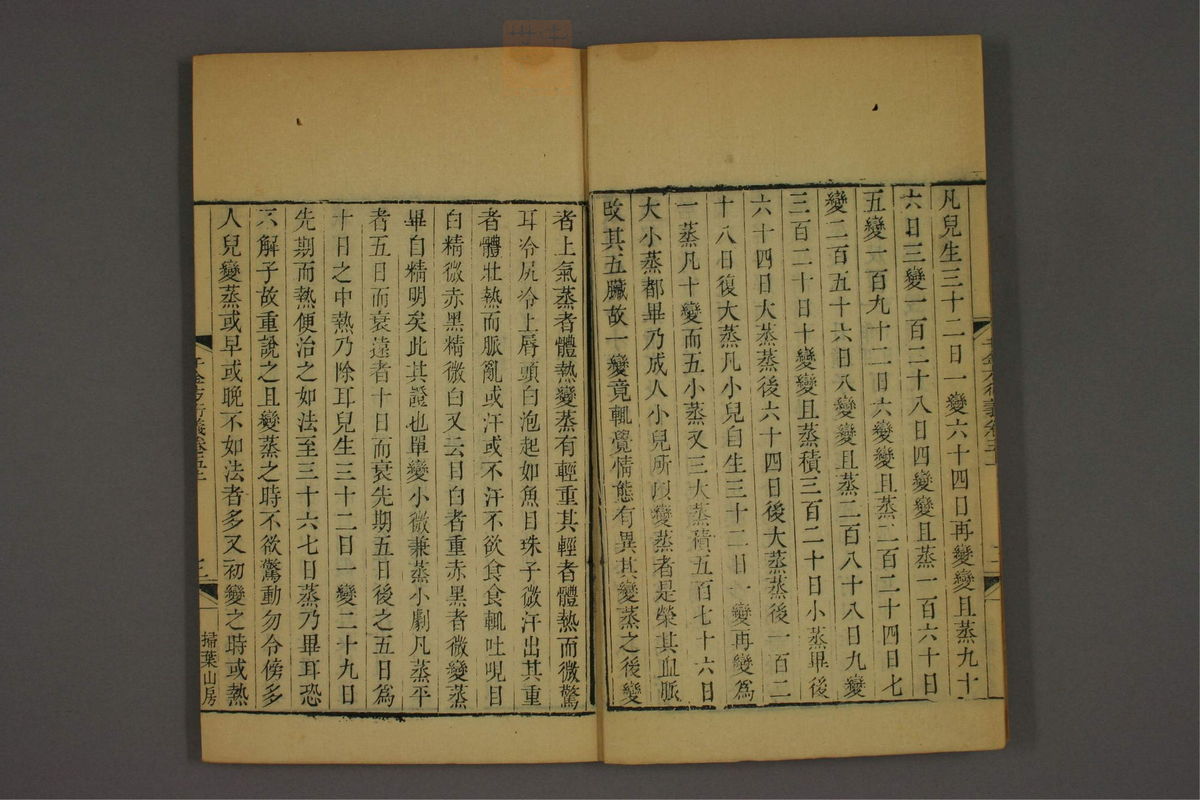 凡兒生三十二日一變六十四日再變變且蒸九十
六日三變一百二十八日四變變且蒸一百六十日
五變一百九十二日六變變且蒸二百二十四日七
變二百五十六日八變變且蒸二百八十八日九變
三百二十日十變變且蒸積三百二十日小蒸畢後
六十四日大蒸蒸後六十四日後大蒸蒸後一百二
十八日復大蒸凡小兒自生三十二日一變再變爲
一蒸凡十變而五小蒸又三大蒸積五百七十六日
大小蒸都畢乃成人小兒所以變蒸者是榮其血脈
改其五臟故一變竟輒覺情態有異其變蒸之後變
者上氣蒸者體熱變蒸有輕重其輕者體熱而微驚
耳冷尻冷上唇頭白泡起如魚目珠子微汗出其重
者體壯熱而脈亂或汗或不汗不欲食食輒吐哯目
白精微赤黑精微白又云目白者重赤黑者微變蒸
畢自精明矣此其證也單變小微兼蒸小劇凡蒸平
者五日而衰遠者十日而衰先期五日後之五日爲
十日之中熱乃除耳兒生三十二日一變二十九日
先期而熱便治之如法至三十六七日蒸乃畢耳恐
不解子故重說之且變蒸之時不欲驚動勿令傍多
人兒變蒸或早或晚不如法者多又初變之時或熱
千金方衍義卷五上
掃葉山房